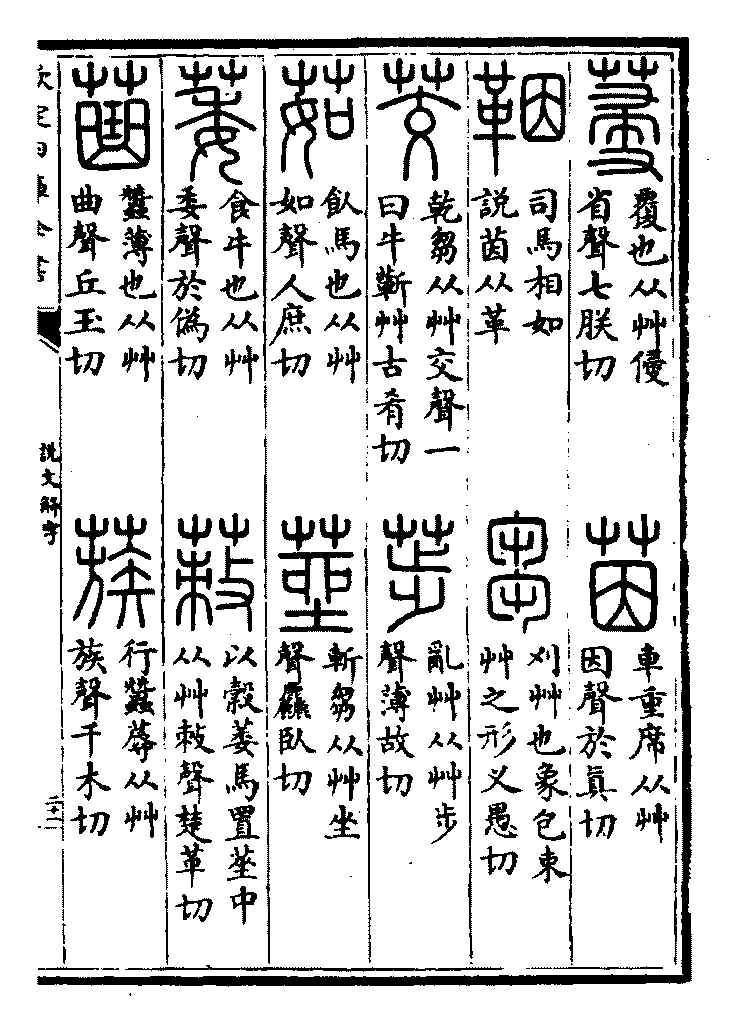 覆也从艸侵
省聲七朕切
茵
車重席从艸
因聲於眞切
鞇
司馬相如
説茵从革
芻
刈艸也象包束
艸之形义愚切
茭
乾芻从艸交聲一
曰牛蘄艸古肴切
荹
亂艸从艸步
聲薄故切
茹
飤馬也从艸
如聲人庶切
莝
斬芻从艸坐
聲麤臥切
萎
食牛也从艸
委聲於僞切
蓛
以穀萎馬置莝中
从艸敇聲楚革切
蠶薄也从艸
曲聲丘玉切
蔟
行蠶蓐从艸
族聲千木切
欽定四庫全書
説文解字